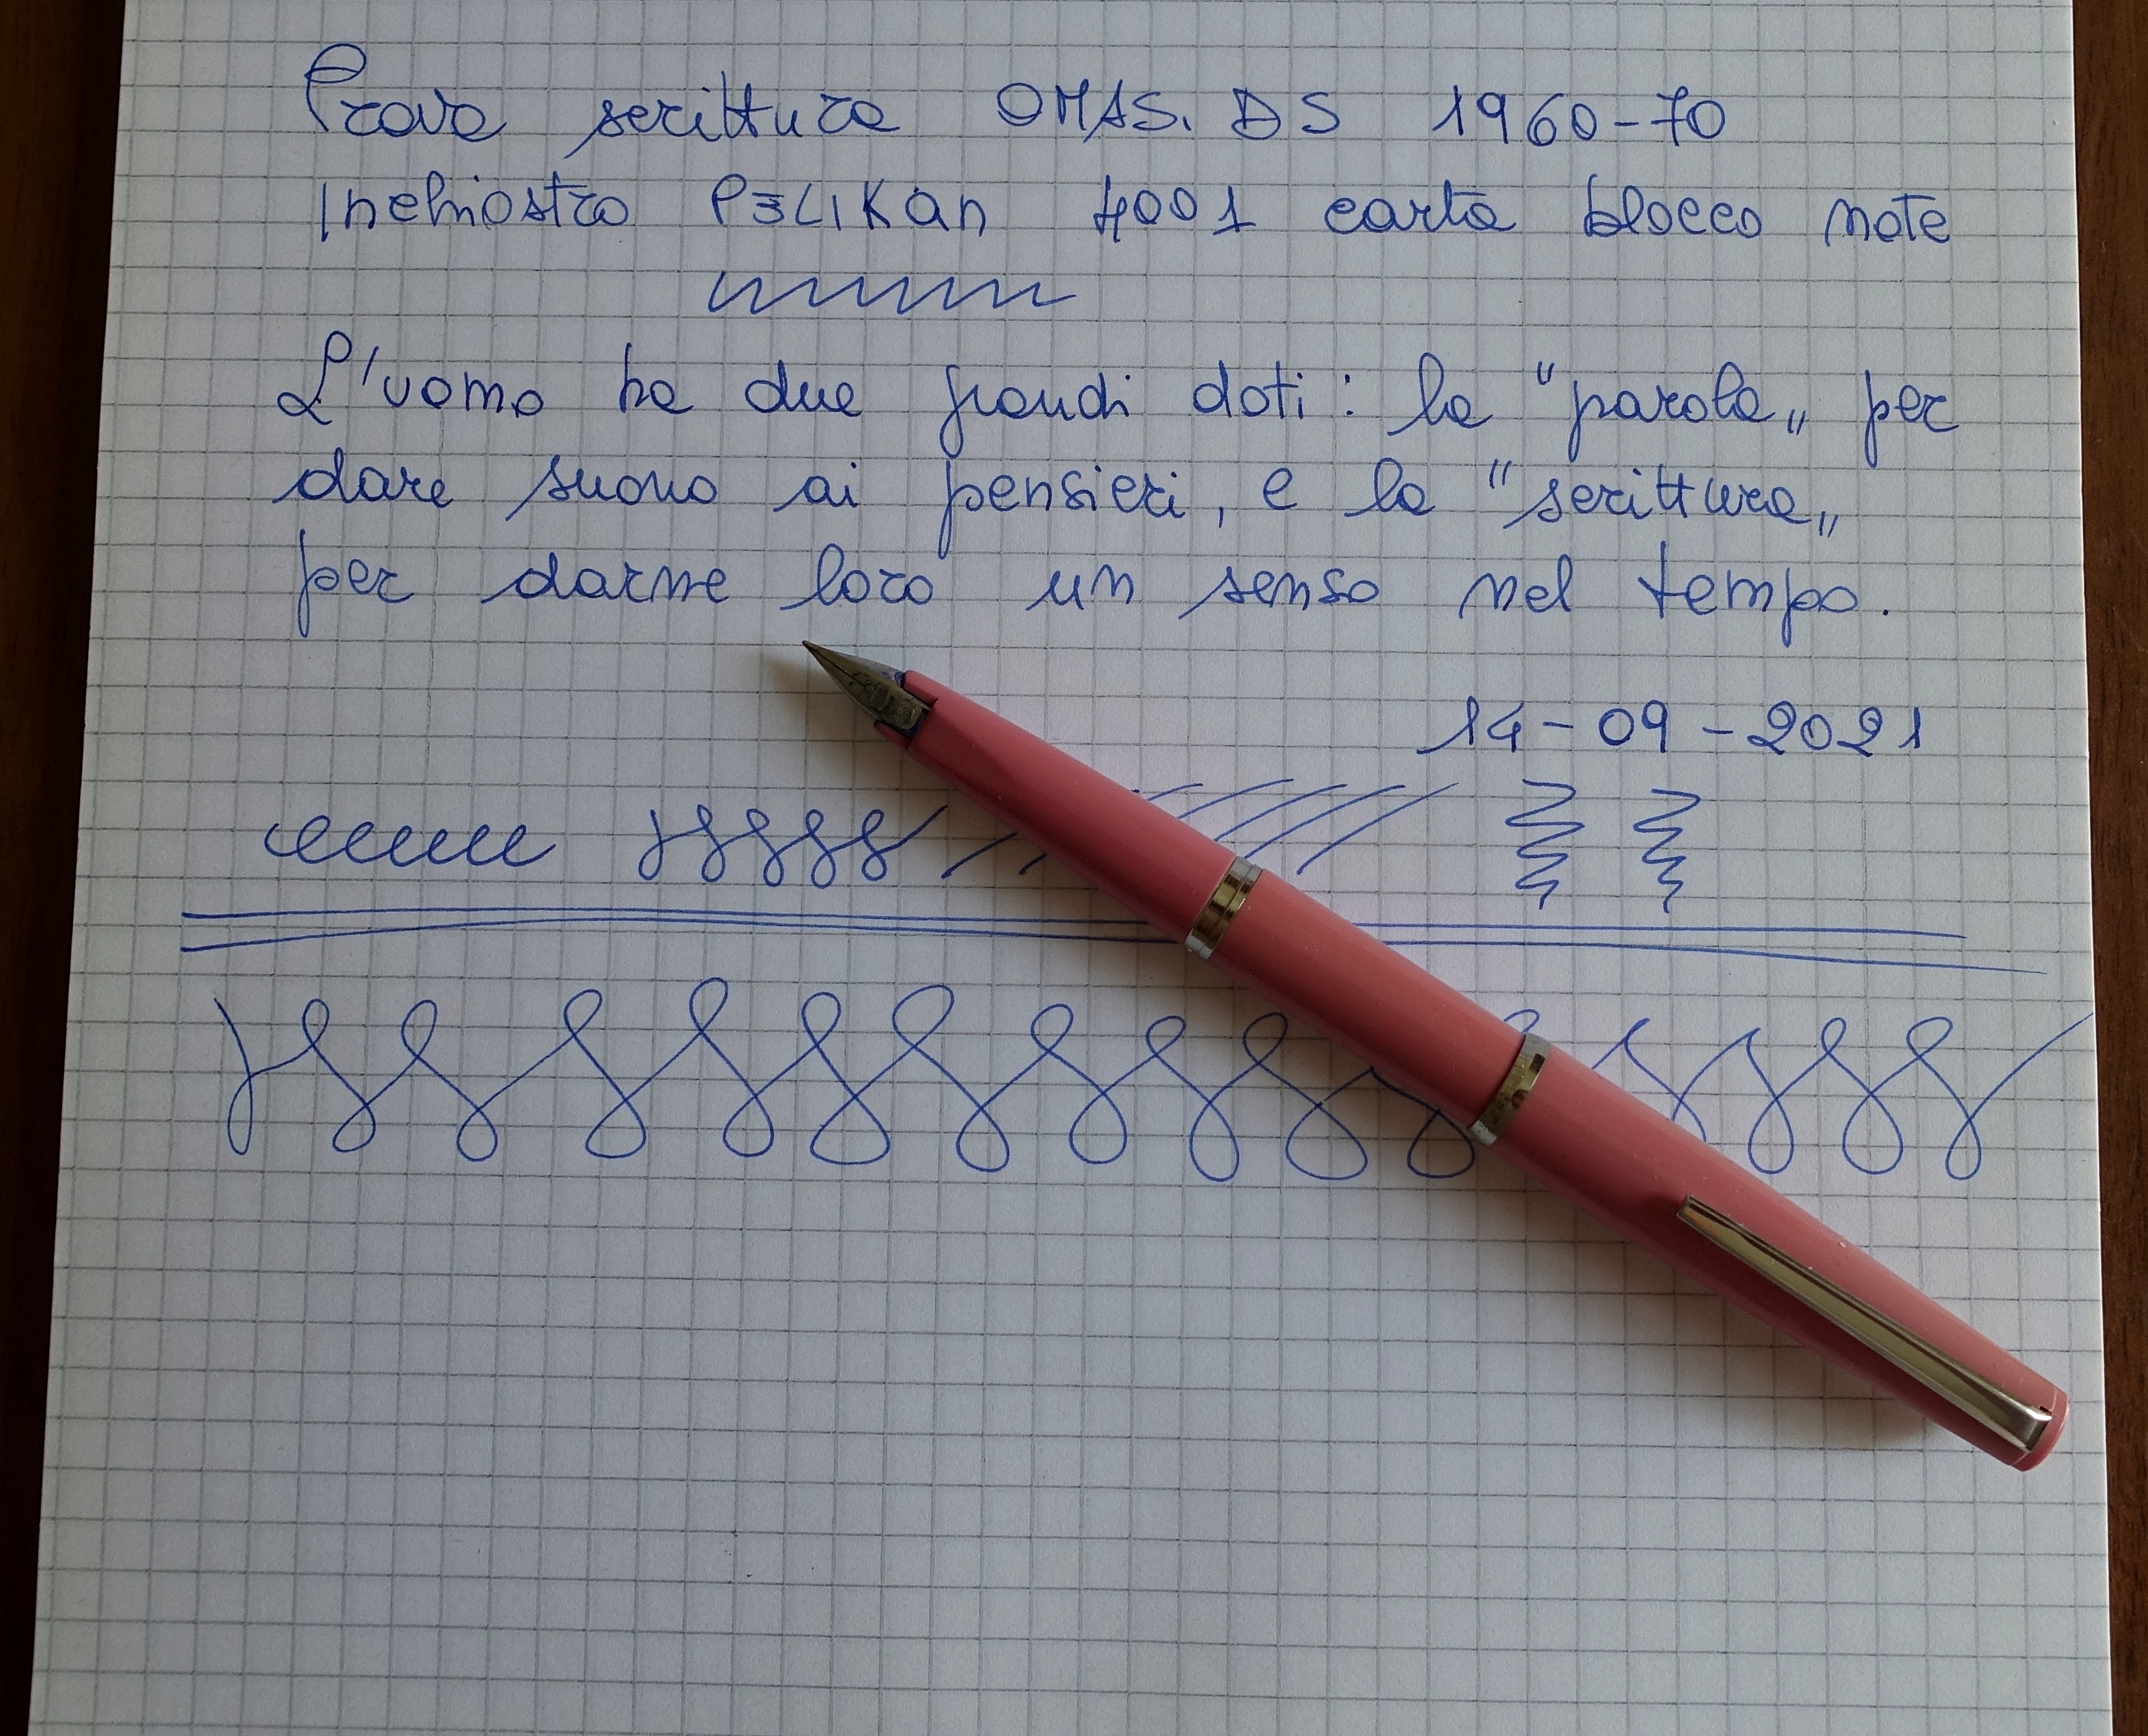 Prova scrittura OMAS. DS 1960-70
Inchiostro PELIKAN 4001 carta blocco note
L'uomo ha due grandi doti: la "parola„ per
dare suono ai pensieri, e la "scrittura„
per darne loro un senso nel tempo.
14-09-2021